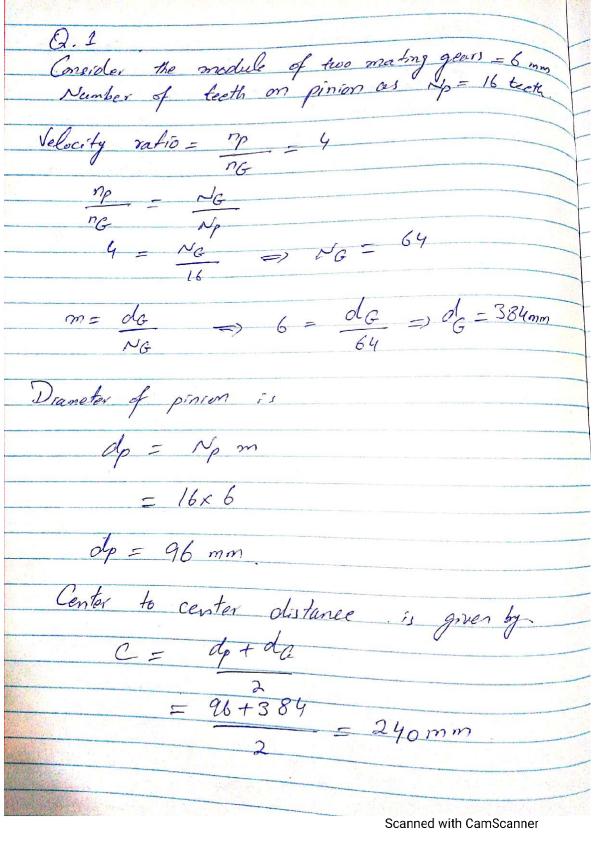 Q.1
Consider the module of two mating gears = 6 mm
Number of teeth on pinion as Np = 16 teeth
Velocity ratio = np/nG = 4
np/nG = NG/Np
4 = NG/16 => NG = 64
m = dG/NG => 6 = dG/64 => dG = 384mm
Diameter of pinion is
dp = Np m
= 16 x 6
dp = 96 mm.
Center to center distance is given by
C = dp + dG/2
= 96 + 384/2 = 240 mm
Scanned with CamScanner